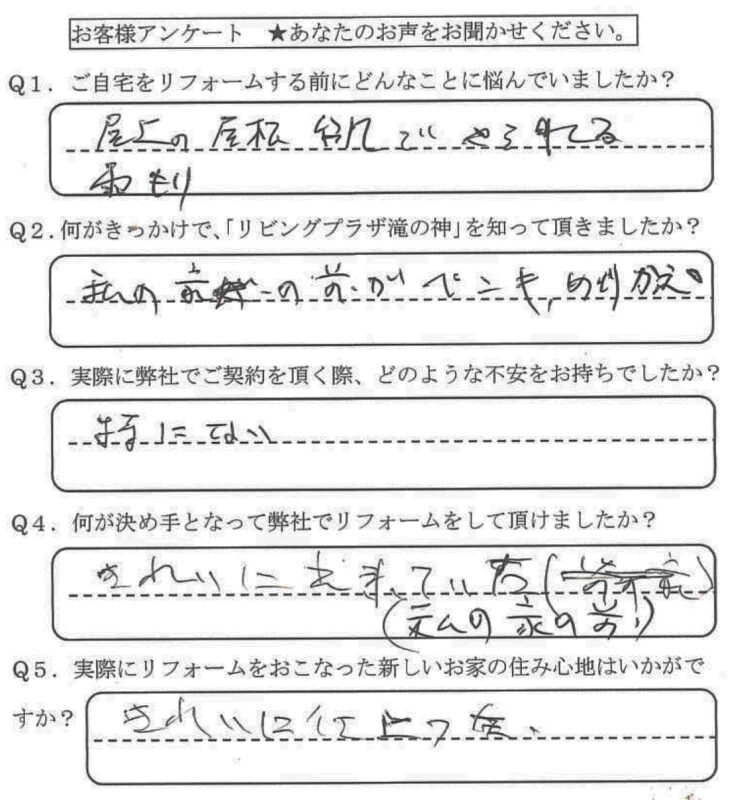 お客様アンケート ★あなたのお声をお聞かせください。
Q1. ご自宅をリフォームする前にどんなことに悩んでいましたか？
屋上の屋根 台風で やられてる
雨もり
Q2. 何がきっかけで、「リビングプラザ滝の神」を知って頂きましたか？
私の家の前がペンキ、ぬりかえ
Q3. 実際に弊社でご契約を頂く際、どのような不安をお持ちでしたか？
特にない
Q4. 何が決め手となって弊社でリフォームをして頂けましたか？
きれいに
(私の家の前)
Q5. 実際にリフォームをおこなった新しいお家の住み心地はいかがで
すか？
きれいに仕上った、